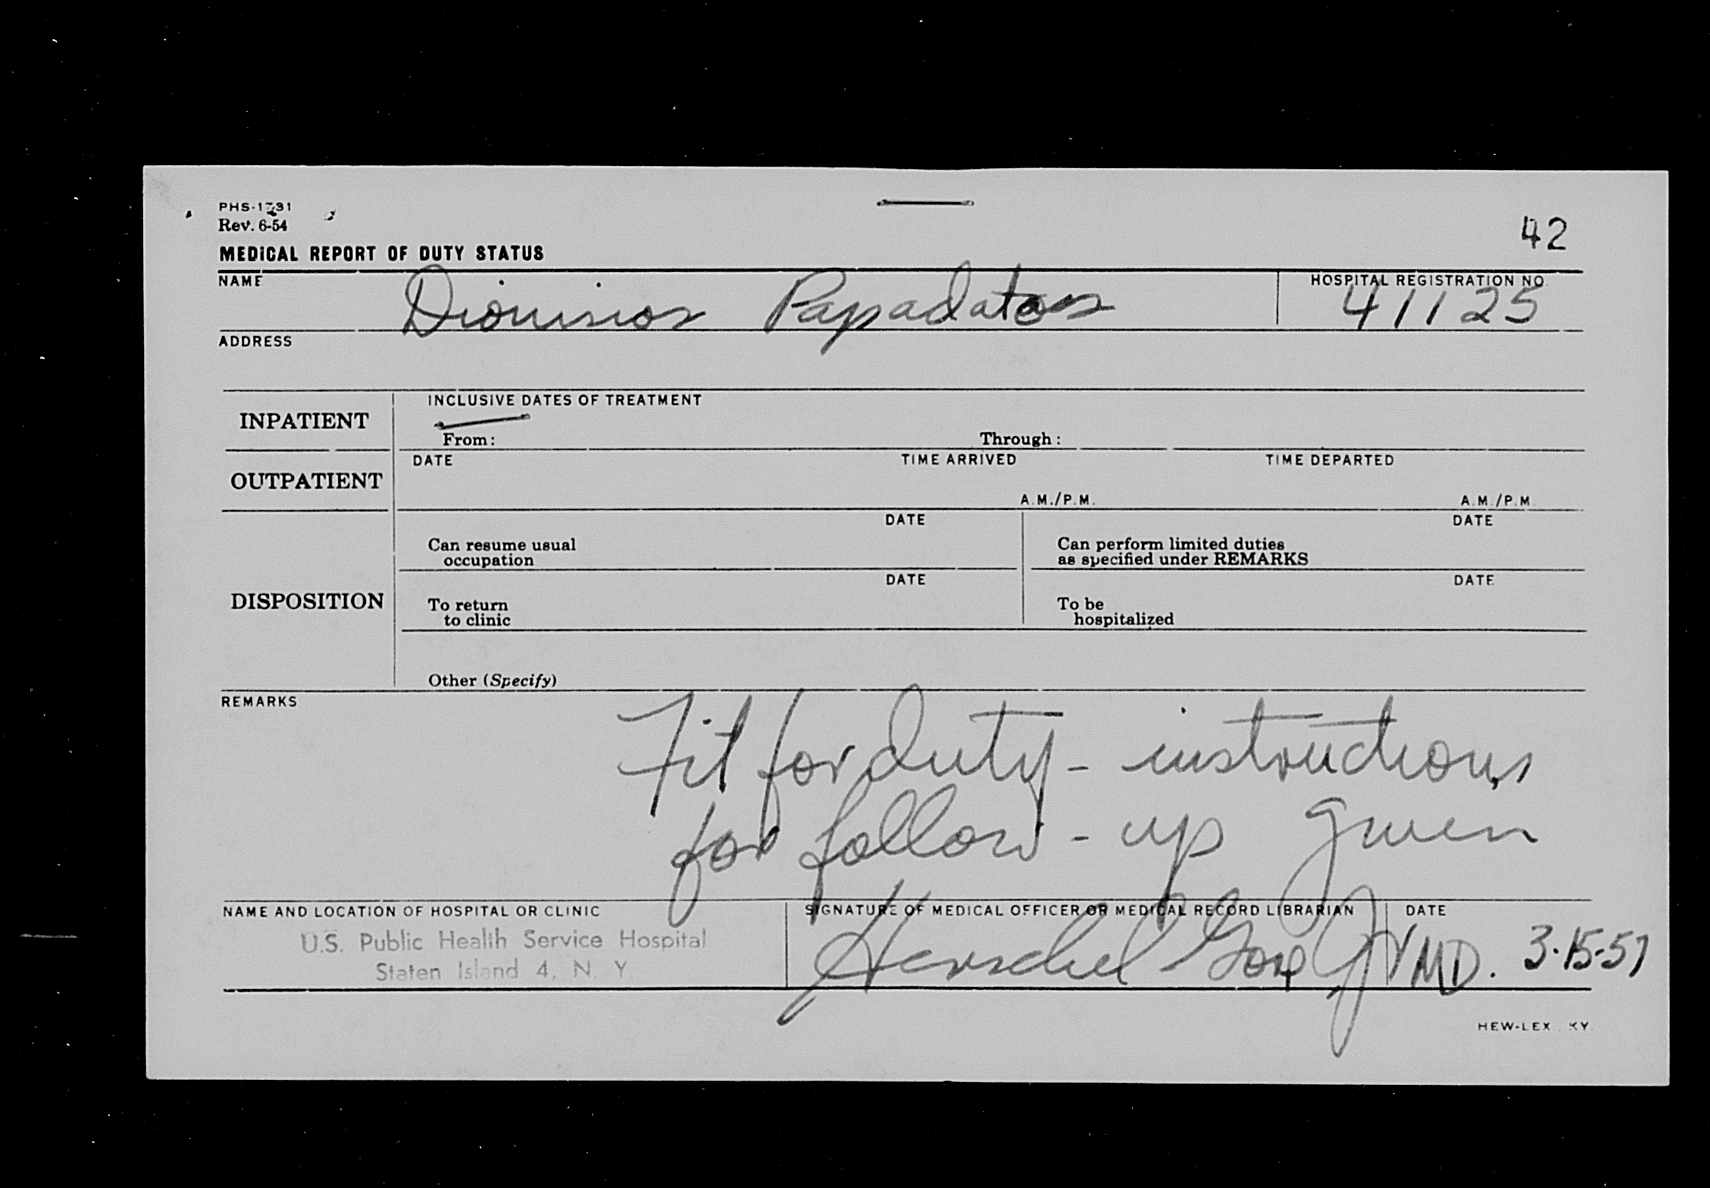 PHS-1731
Rev. 6-54
42
MEDICAL REPORT OF DUTY STATUS
NAME Dionisios Papadatos HOSPITAL REGISTRATION NO. 41125
ADDRESS
INPATIENT INCLUSIVE DATES OF TREATMENT
From: Through:
OUTPATIENT DATE TIME ARRIVED TIME DEPARTED
A.M./P.M. A.M./P.M.
DISPOSITION
DATE DATE
Can resume usual Can perform limited duties
occupation as specified under REMARKS
DATE DATE
To return To be
to clinic hospitalized
Other (Specify)
REMARKS
Fit for duty - instructions
for follow-up given
NAME AND LOCATION OF HOSPITAL OR CLINIC SIGNATURE OF MEDICAL OFFICER OR MEDICAL RECORD LIBRARIAN DATE
U.S. Public Health Service Hospital
Staten Island 4, N. Y.
Herschel MD. 3-15-57
HEW-LEX., KY.